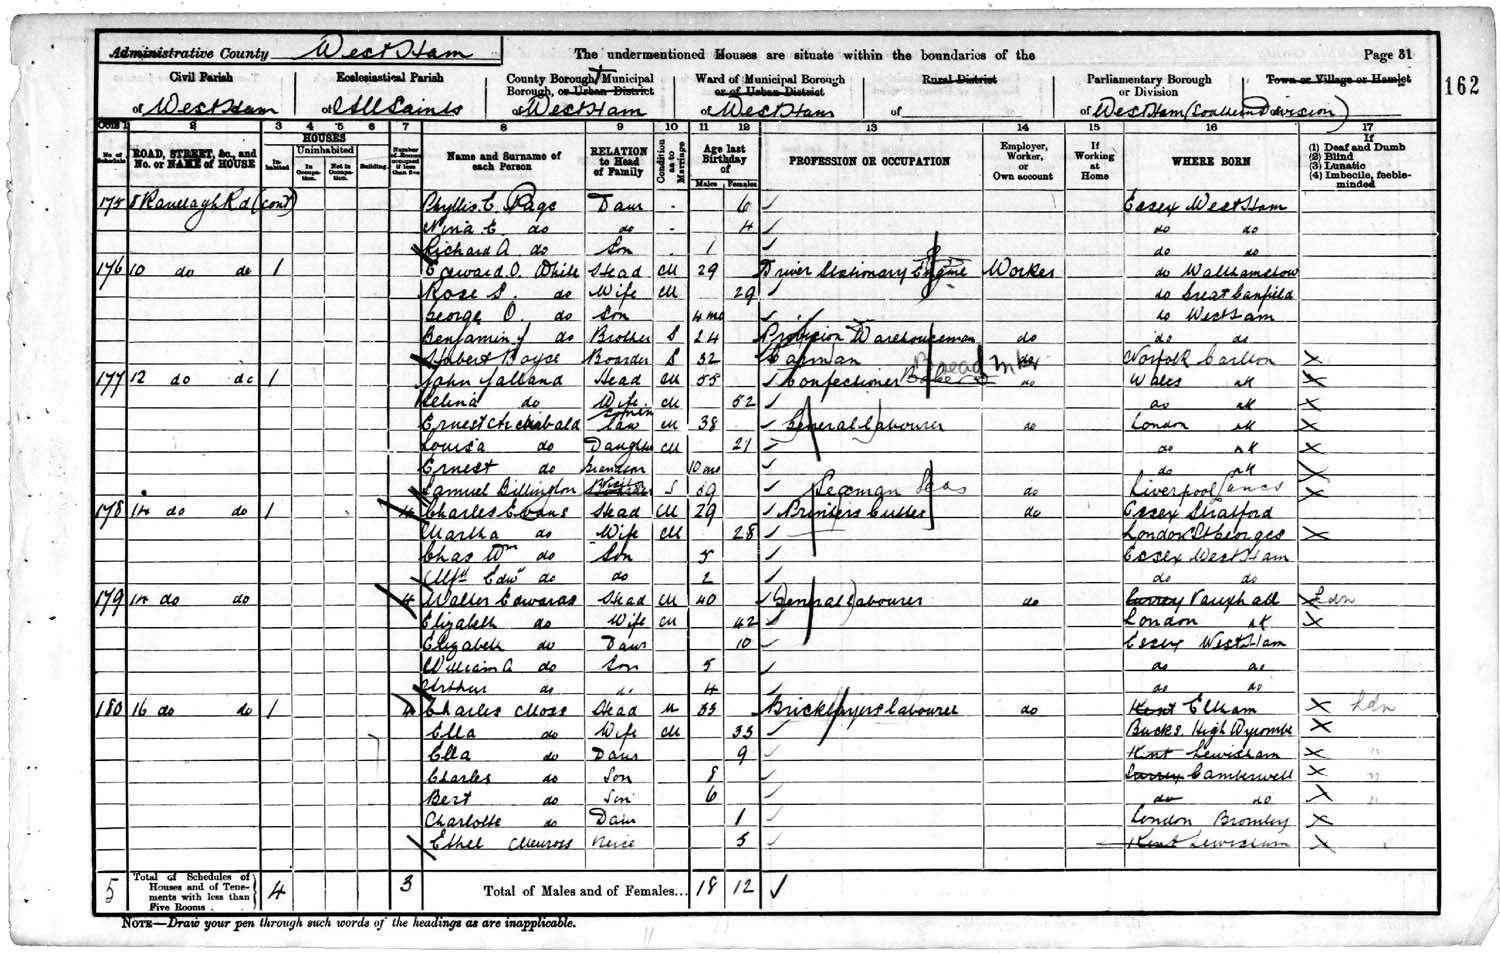 Administrative County West Ham
The undermentioned Houses are situate within the boundaries of the
Page 31
162
Civil Parish of West Ham
Ecclesiastical Parish of All Saints
County Borough, Municipal Borough, or Urban District of West Ham
Ward of Municipal Borough or of Urban District of West Ham
Rural District of
Parliamentary Borough or Division of West Ham (Southern Division)
Town or Village or Hamlet
Cols 1 2 3 4 5 6 7 8 9 10 11 12 13 14 15 16 17
No. of Schedule
ROAD, STREET, &c., and No. or NAME of HOUSE
HOUSES
Inhabited
Uninhabited
In Occupation.
Not in Occupation.
Building.
Number of Rooms occupied if less than five
Name and Surname of each Person
RELATION to Head of Family
Condition as to Marriage
Age last Birthday of
Males Females
PROFESSION OR OCCUPATION
Employer, Worker, or Own account
If Working at Home
WHERE BORN
If (1) Deaf and Dumb (2) Blind (3) Lunatic (4) Imbecile, feeble-minded
175 8 Ranelagh Rd (cont) Phyllis E. Page Daur - 6 Essex West Ham
Nina E. do do - 4 do do
Richard A do Son 1 do do
176 10 do do 1 Edward O. White Head M 29 Driver Stationary Engine Worker do Walthamstow
Rose S. do Wife M 29 do Great Canfield
George O. do Son 4 mo do West Ham
Benjamin J do Brother S 24 Provision Warehouseman do do do
Hubert Boyce Boarder S 32 Carman do Norfolk Carlton
177 12 do do 1 John Jalland Head M 55 Confectioner Baker Bread Mkr do Wales NK
Selina do Wife M 52 do NK
Ernest Archibald Son in law M 38 General Labourer do London NK
Louisa do Daughter M 21 do NK
Ernest do Grandson 10 mo do NK
Samuel Billington Boarder Visitor S 59 Seaman Seas do Liverpool Lancs
178 14 do do 1 4 Charles Evans Head M 29 Printers Cutter do Essex Stratford
Martha do Wife M 28 London St Georges
Chas Wm do Son 5 Essex West Ham
Alfd Edwd do do 2 do do
179 14 do do 4 Walter Edwards Head M 40 General Labourer do Surrey Vauxhall Ldn
Elizabeth do Wife M 42 London NK
Elizabeth do Daur 10 Essex West Ham
William A do Son 5 do do
Arthur do do 4 do do
180 16 do do 1 4 Charles Moss Head M 33 Bricklayers labourer do Kent Eltham Ldn
Ella do Wife M 33 Bucks. High Wycombe
Ella do Daur 9 Kent Lewisham "
Charles do Son 8 Surrey Camberwell "
Bert do Son 6 do do "
Charlotte do Daur 1 London Bromley
Ethel Niece 5 Kent Lewisham
5 Total of Schedules of Houses and of Tenements with less than Five Rooms 4 3 Total of Males and of Females... 18 12
NOTE—Draw your pen through such words of the headings as are inapplicable.